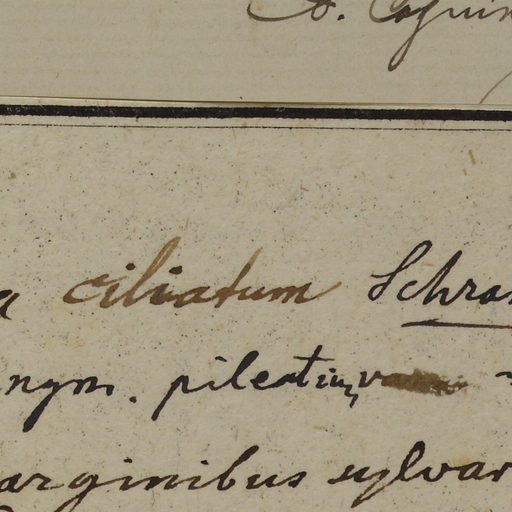 A. Coguin
a ciliatum Schra
nym. pileatum
arginibus sylvar